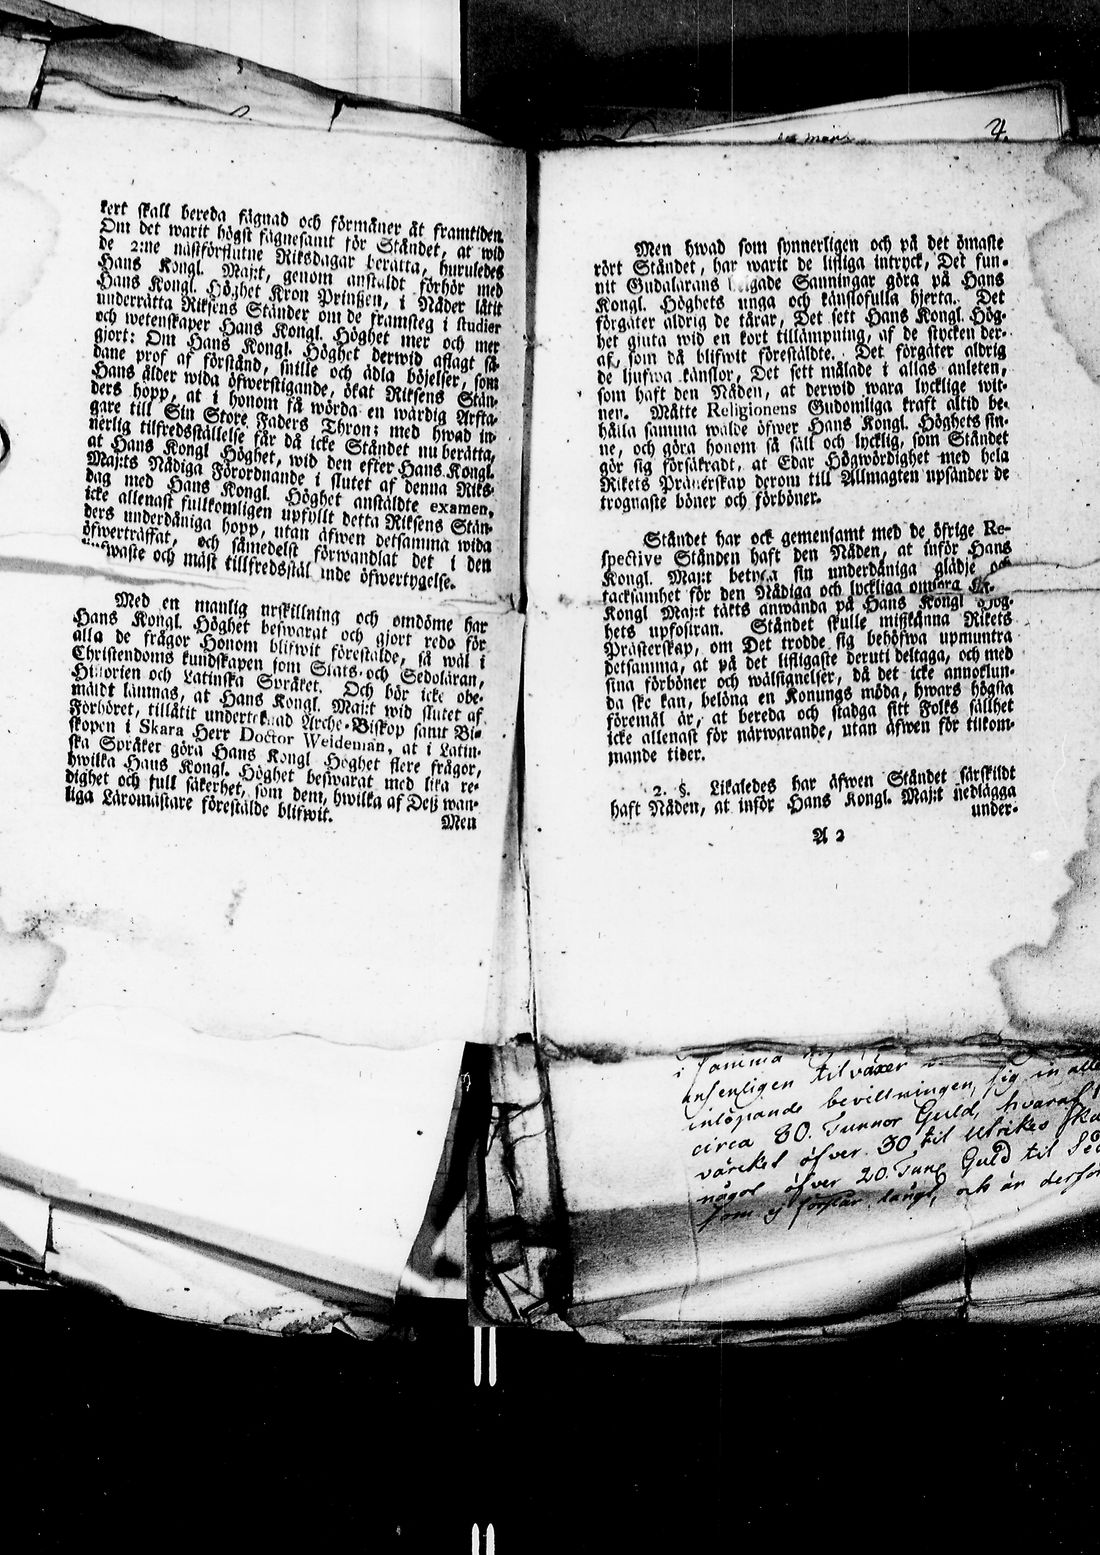 kert skall bereda fägnad och förmåner åt framtiden.
Om det warit högst fägnesamt för Ståndet, at wid
de 2:ne nästförflutne Riksdagar berätta, huruledes
Hans Kongl. Maj:t, genom anstäldt förhör med
Hans Kongl. Höghet Kron Prinßen, i Nåder låtit
underrätta Riksens Ständer om de framsteg i studier
och wetenskaper Hans Kongl. Höghet mer och mer
gjort: Om Hans Kongl. Höghet derwid aflagt så-
dane prof af förstånd, snille och ädla böjelser, som
Hans ålder wida öfwerstigande, ökat Riksens Stän-
ders hopp, at i honom få wörda en wärdig Arfta-
gare till Sin Store Faders Thron; med hwad in-
nerlig tilfredsställelse får då icke Ståndet nu berätta,
at Hans Kongl Höghet, wid den efter Hans Kongl.
Maj:ts Nådiga Förordnande i slutet af denna Riks-
dag med Hans Kongl. Höghet anstäldte examen,
icke allenast fullkomligen upfyllt detta Riksens Stän-
ders underdåniga hopp, utan äfwen detsamma wida
öfwerträffat, och såmedelst förwandlat det i den
och mäst tillfredsstäl ande öfwertygelse.
Med en manlig urskillning och omdöme har
Hans Kongl. Höghet beswarat och gjort redo för
alla de frågor Honom blifwit förestälde, så wäl i
Christendoms kundskapen som Stats- och Sedoläran,
Historien och Latinska Språket. Och bör icke obe-
mäldt lämnas, at Hans Kongl. Maj:t wid slutet af
Förhöret, tillåtit undertecknad Arche-Biskop samt Bi-
skopen i Skara Herr Doctor Weideman, at i Latin-
ska Språket göra Hans Kongl Höghet flere frågor,
hwilka Hans Kongl. Höghet beswarat med lika re-
dighet och full säkerhet, som dem, hwilka af Deß wan-
liga Läromästare förestälde blifwit.
Men
4.
Men hwad som synnerligen och på det ömaste
rört Ståndet, har warit de lifliga intryck, Det fun-
nit Gudalärans helgade Sanningar göra på Hans
Kongl. Höghets unga och känslofulla hjerta. Det
förgäter aldrig de tårar, Det sett Hans Kongl. Hög-
het gjuta wid en kort tillämpning, af de stycken der-
af, som då blifwit förestäldte. Det förgäter aldrig
de ljufwa känslor, Det sett målade i allas anleten,
som haft den Nåden, at derwid wara lycklige wit-
nen. Måtte Religionens Gudomliga kraft altid be-
hålla samma wälde öfwer Hans Kongl. Höghets sin-
ne, och göra honom så säll och lycklig, som Ståndet
gör sig försäkradt, at Edar Högwördighet med hela
Rikets Prästerskap derom till Allmagten upsänder de
trognaste böner och förböner.
Ståndet har ock gemensamt med de öfrige Re-
spective Stånden haft den Nåden, at inför Hans
Kongl. Maj:t betyga sin underdåniga glädje och
tacksamhet för den Nådiga och lyckliga omsorg
Kongl Maj:t täkts anwända på Hans Kongl Hög-
hets upfostran. Ståndet skulle mißkänna Rikets
Prästerskap, om Det trodde sig behöfwa upmuntra
detsamma, at på det lifligaste deruti deltaga, och med
sina förböner och wälsignelser, då det icke annorlun-
da ske kan, belöna en Konungs möda, hwars högsta
föremål är, at bereda och stadga sitt Folks sällhet
icke allenast för närwarande, utan äfwen för tilkom-
mande tider.
2. §. Likaledes har äfwen Ståndet särskildt
haft Nåden, at inför Hans Kongl. Maj:t nedlägga
under-
A 2
i samma
ansenligen tilväxer
inlöpande bevillningen, sig in alles
circa 80. Tunnor Guld, hvaraf
värcket öfver 30 til Utrikes
något öfver 20. Tunc Guld til
som ej förslår långt, och är derför